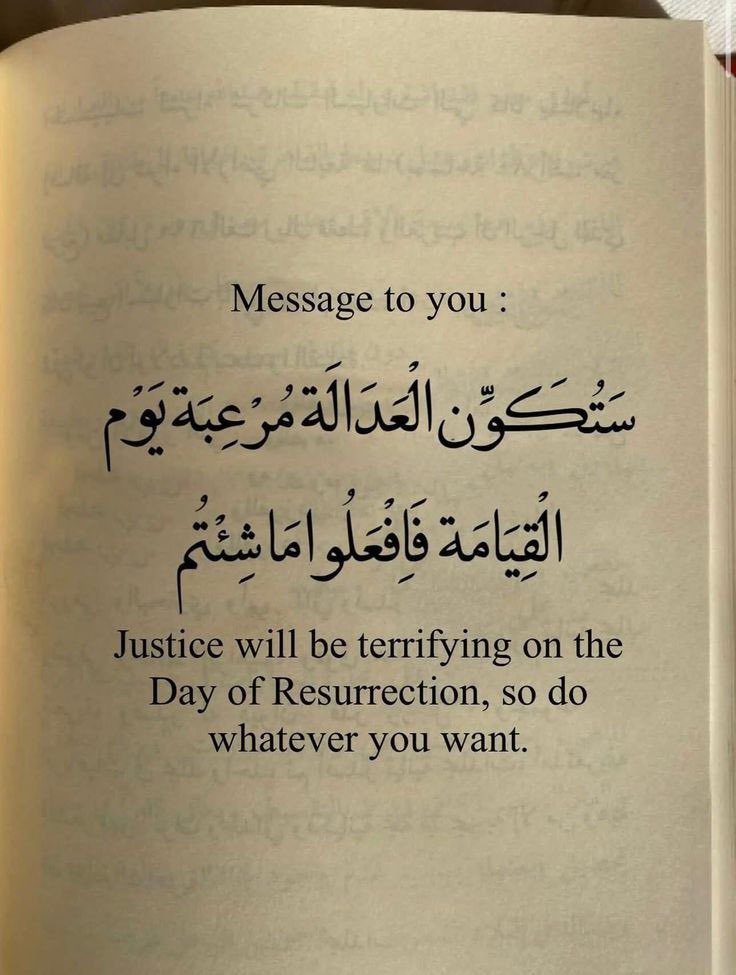 Message to you :
سَتُكَوِّن الْعَدَالَة مُرْعِبَة يَوْم
الْقِيَامَة فَافْعَلُوا مَا شِئْتُم
Justice will be terrifying on the
Day of Resurrection, so do
whatever you want.